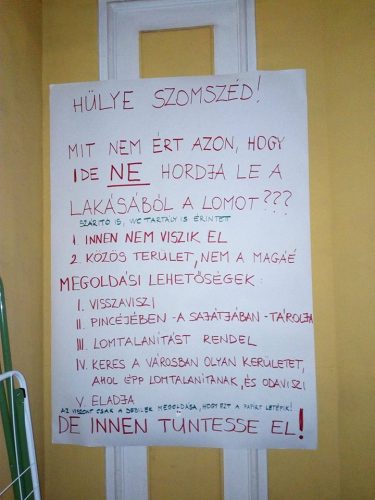 HÜLYE SZOMSZÉD!
MIT NEM ÉRT AZON, HOGY
IDE NE HORDJA LE A
LAKÁSÁBÓL A LOMOT???
SZÁRÍTÓ IS, WC TARTÁLY IS ÉRINTETT
1 INNEN NEM VISZIK EL
2. KÖZÖS TERÜLET, NEM A MAGÁÉ
MEGOLDÁSI LEHETŐSÉGEK:
I. VISSZAVISZI
II. PINCÉJÉBEN -A SAJÁTJÁBAN- TÁROLJA
III. LOMTALANÍTÁST RENDEL
IV. KERES A VÁROSBAN OLYAN KERÜLETET,
AHOL ÉPP LOMTALANÍTANAK, ÉS ODAVISZI
V. ELADJA
AZ VISZONT CSAK A DEBILEK MEGOLDÁSA, HOGY EZT A PAPÍRT LETÉPIK!
DE INNEN TÜNTESSE EL!